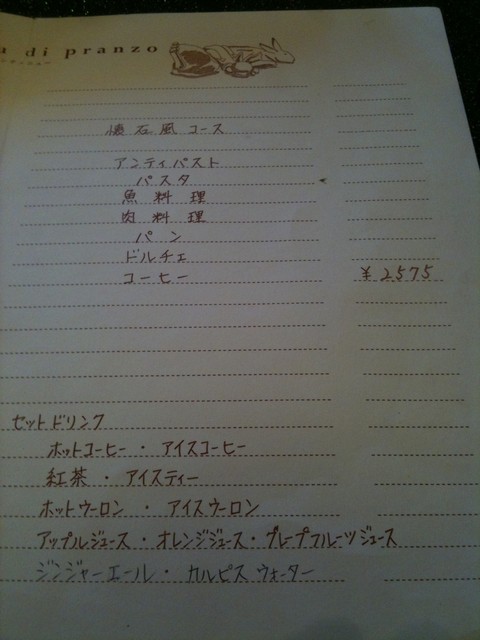 a di pranzo
懐石風コース
アンティパスト
パスタ
魚料理
肉料理
パン
ドルチェ
コーヒー ¥2575
セットドリンク
ホットコーヒー・アイスコーヒー
紅茶・アイスティー
ホットウーロン・アイスウーロン
アップルジュース・オレンジジュース・グレープフルーツジュース
ジンジャーエール・カルピスウォーター